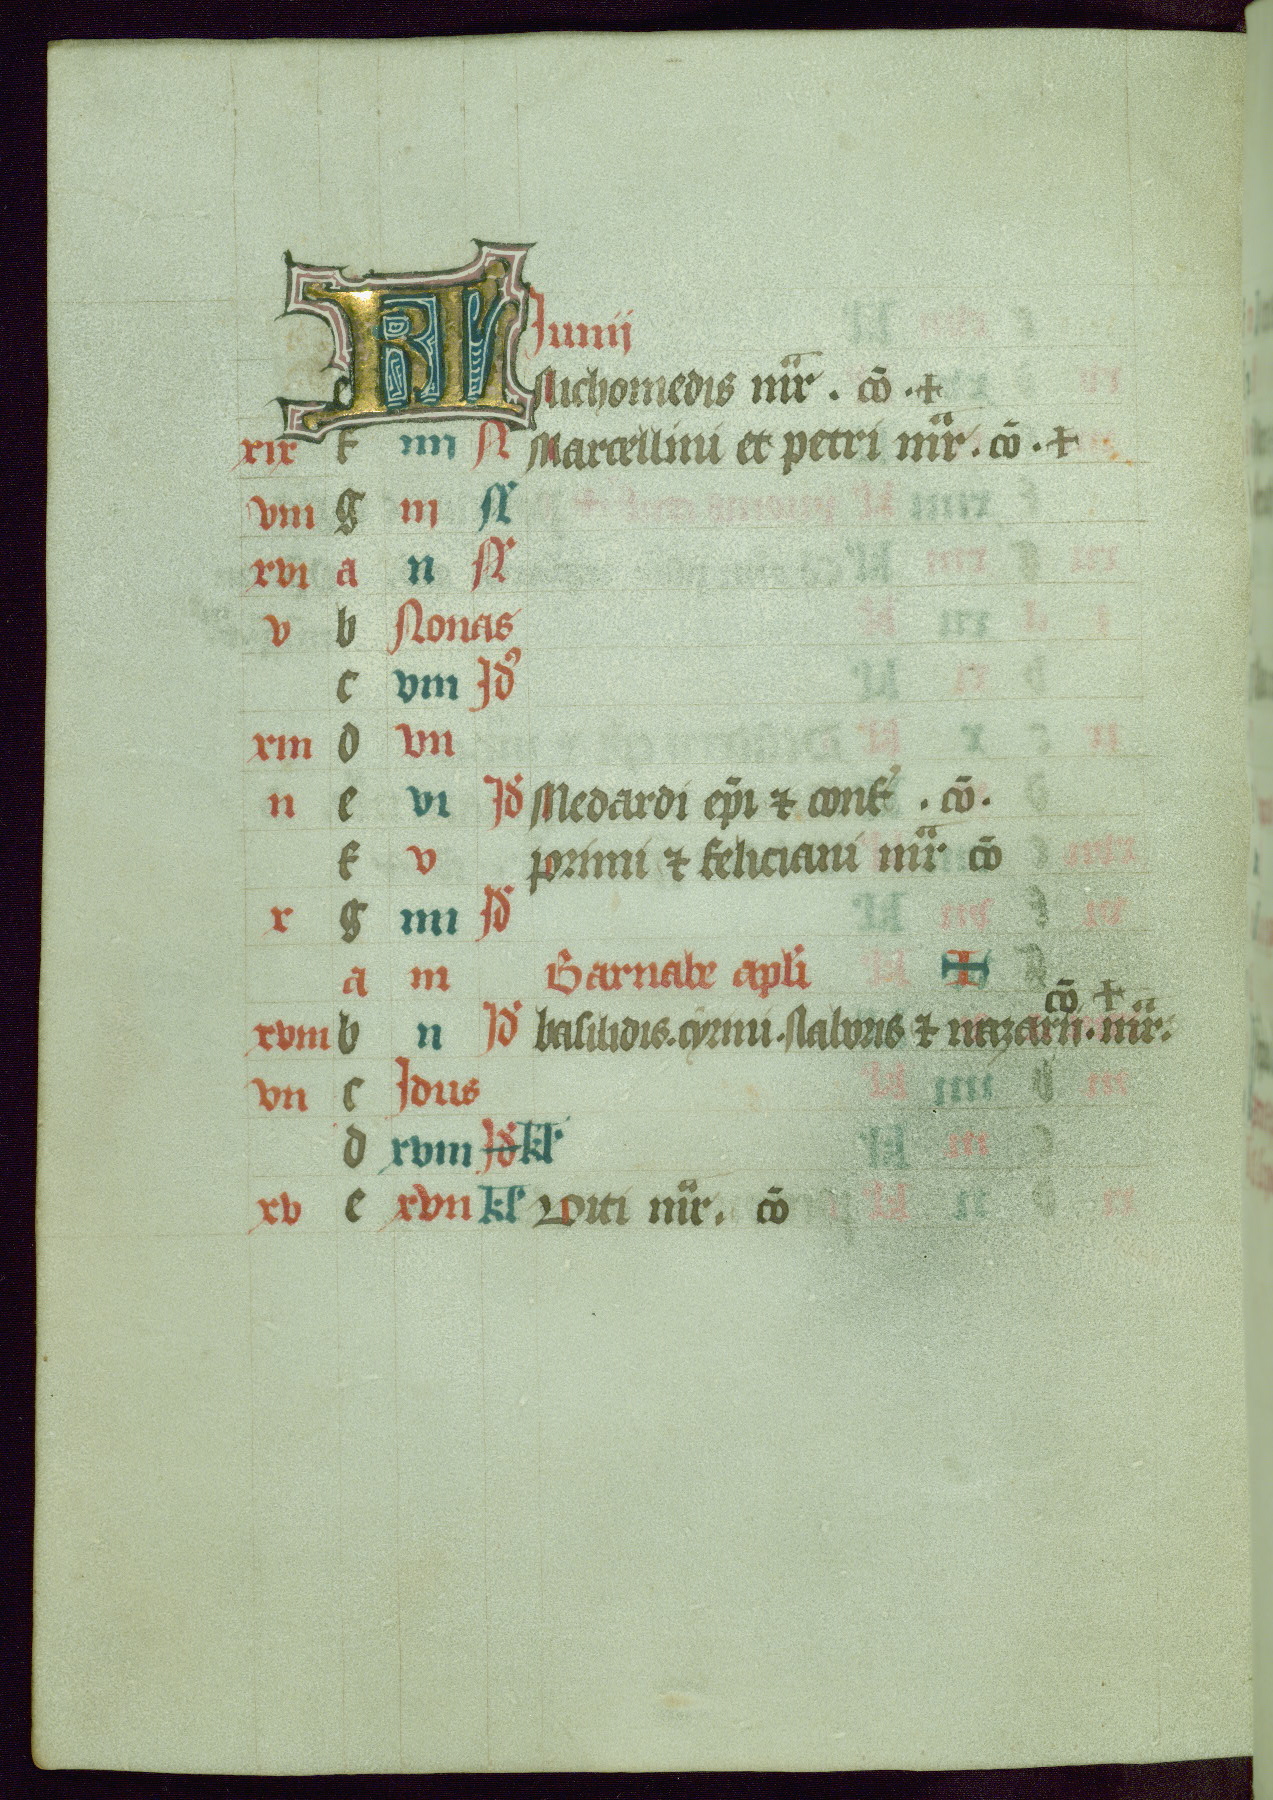 KL Junij
e Nichomedis mr̄r . cō . +
xix f iiii N Marcellini et petri mr̄r . cō . +
viii g iii N
xvi a ii N
v b Nonas
c viii Id'
xiii d vii
ii e vi Id Medardi ep̄i ⁊ conf' . cō .
f v primi ⁊ feliciani mr̄r cō
x g iiii Id
a iii Barnabe apl'i +
cō +
xviii b ii Id basilidis . cyrini . Naboris ⁊ nazarii . mr̄r .
vii c Idus
d xviii Id kl'
xv e xvii kl' Viti mr̄r . cō